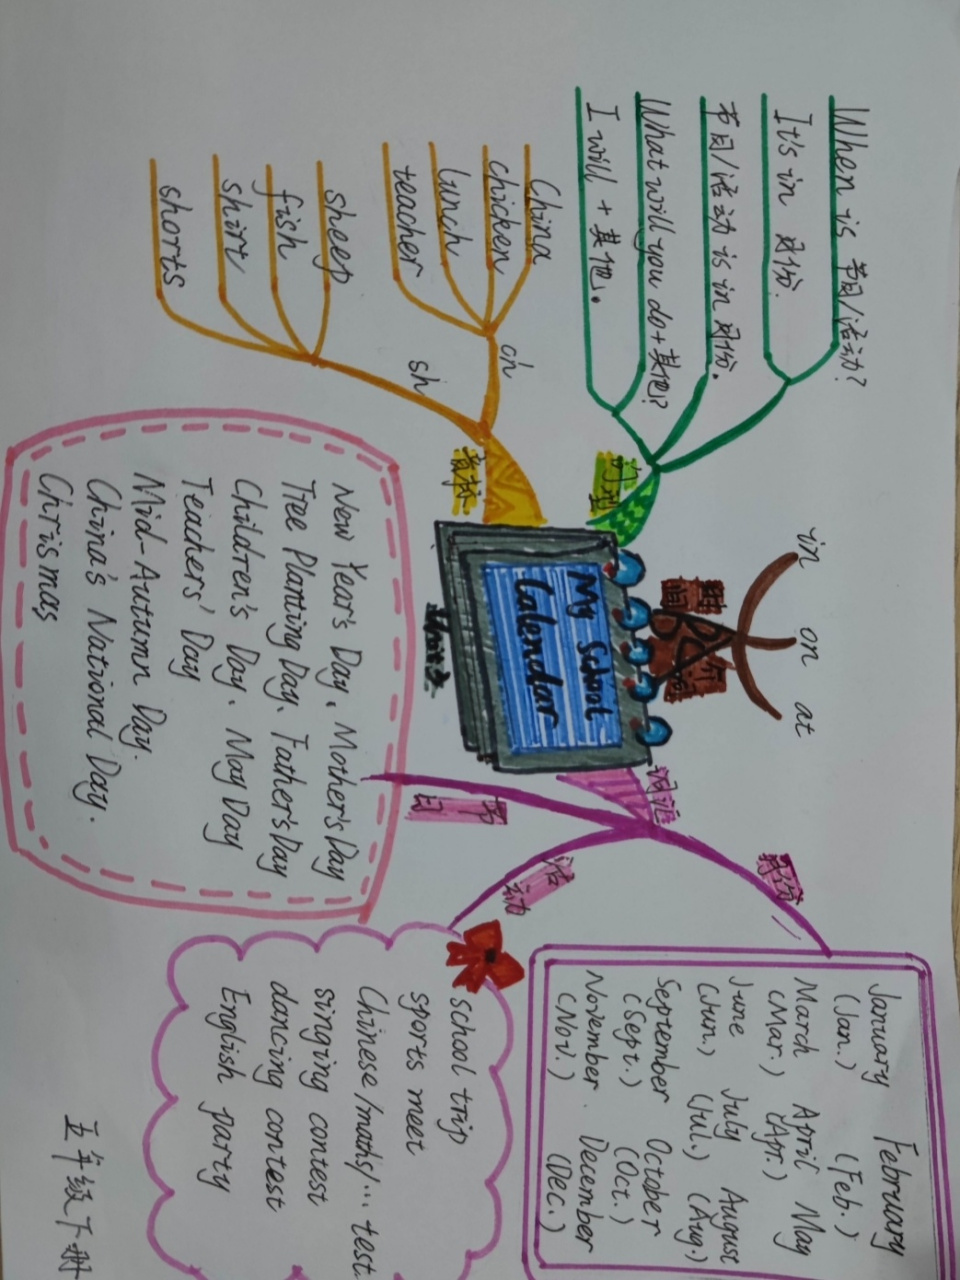 When is 节日/活动?
It's in 月份.
节日/活动 is in 月份.
What will you do+其他?
I will + 其他。
句型
China
chicken
lunch
teacher
ch
sheep
fish
shirt
shorts
sh
音标
in
on
at
时间
介词
My School
Calendar
Unit 3
词汇
月份
January February
(Jan.) (Feb.)
March April May
(Mar.) (Apr.)
June July August
(Jun.) (Jul.) (Aug.)
September October
(Sept.) (Oct.)
November. December
(Nov.) (Dec.)
活动
school trip
sports meet
Chinese/maths/… test.
singing contest
dancing contest
English party
节日
New Year's Day、Mother's Day
Tree Planting Day、Father's Day
Children's Day、May Day
Teachers' Day
Mid-Autumn Day.
China's National Day.
Chrismas
五年级下册